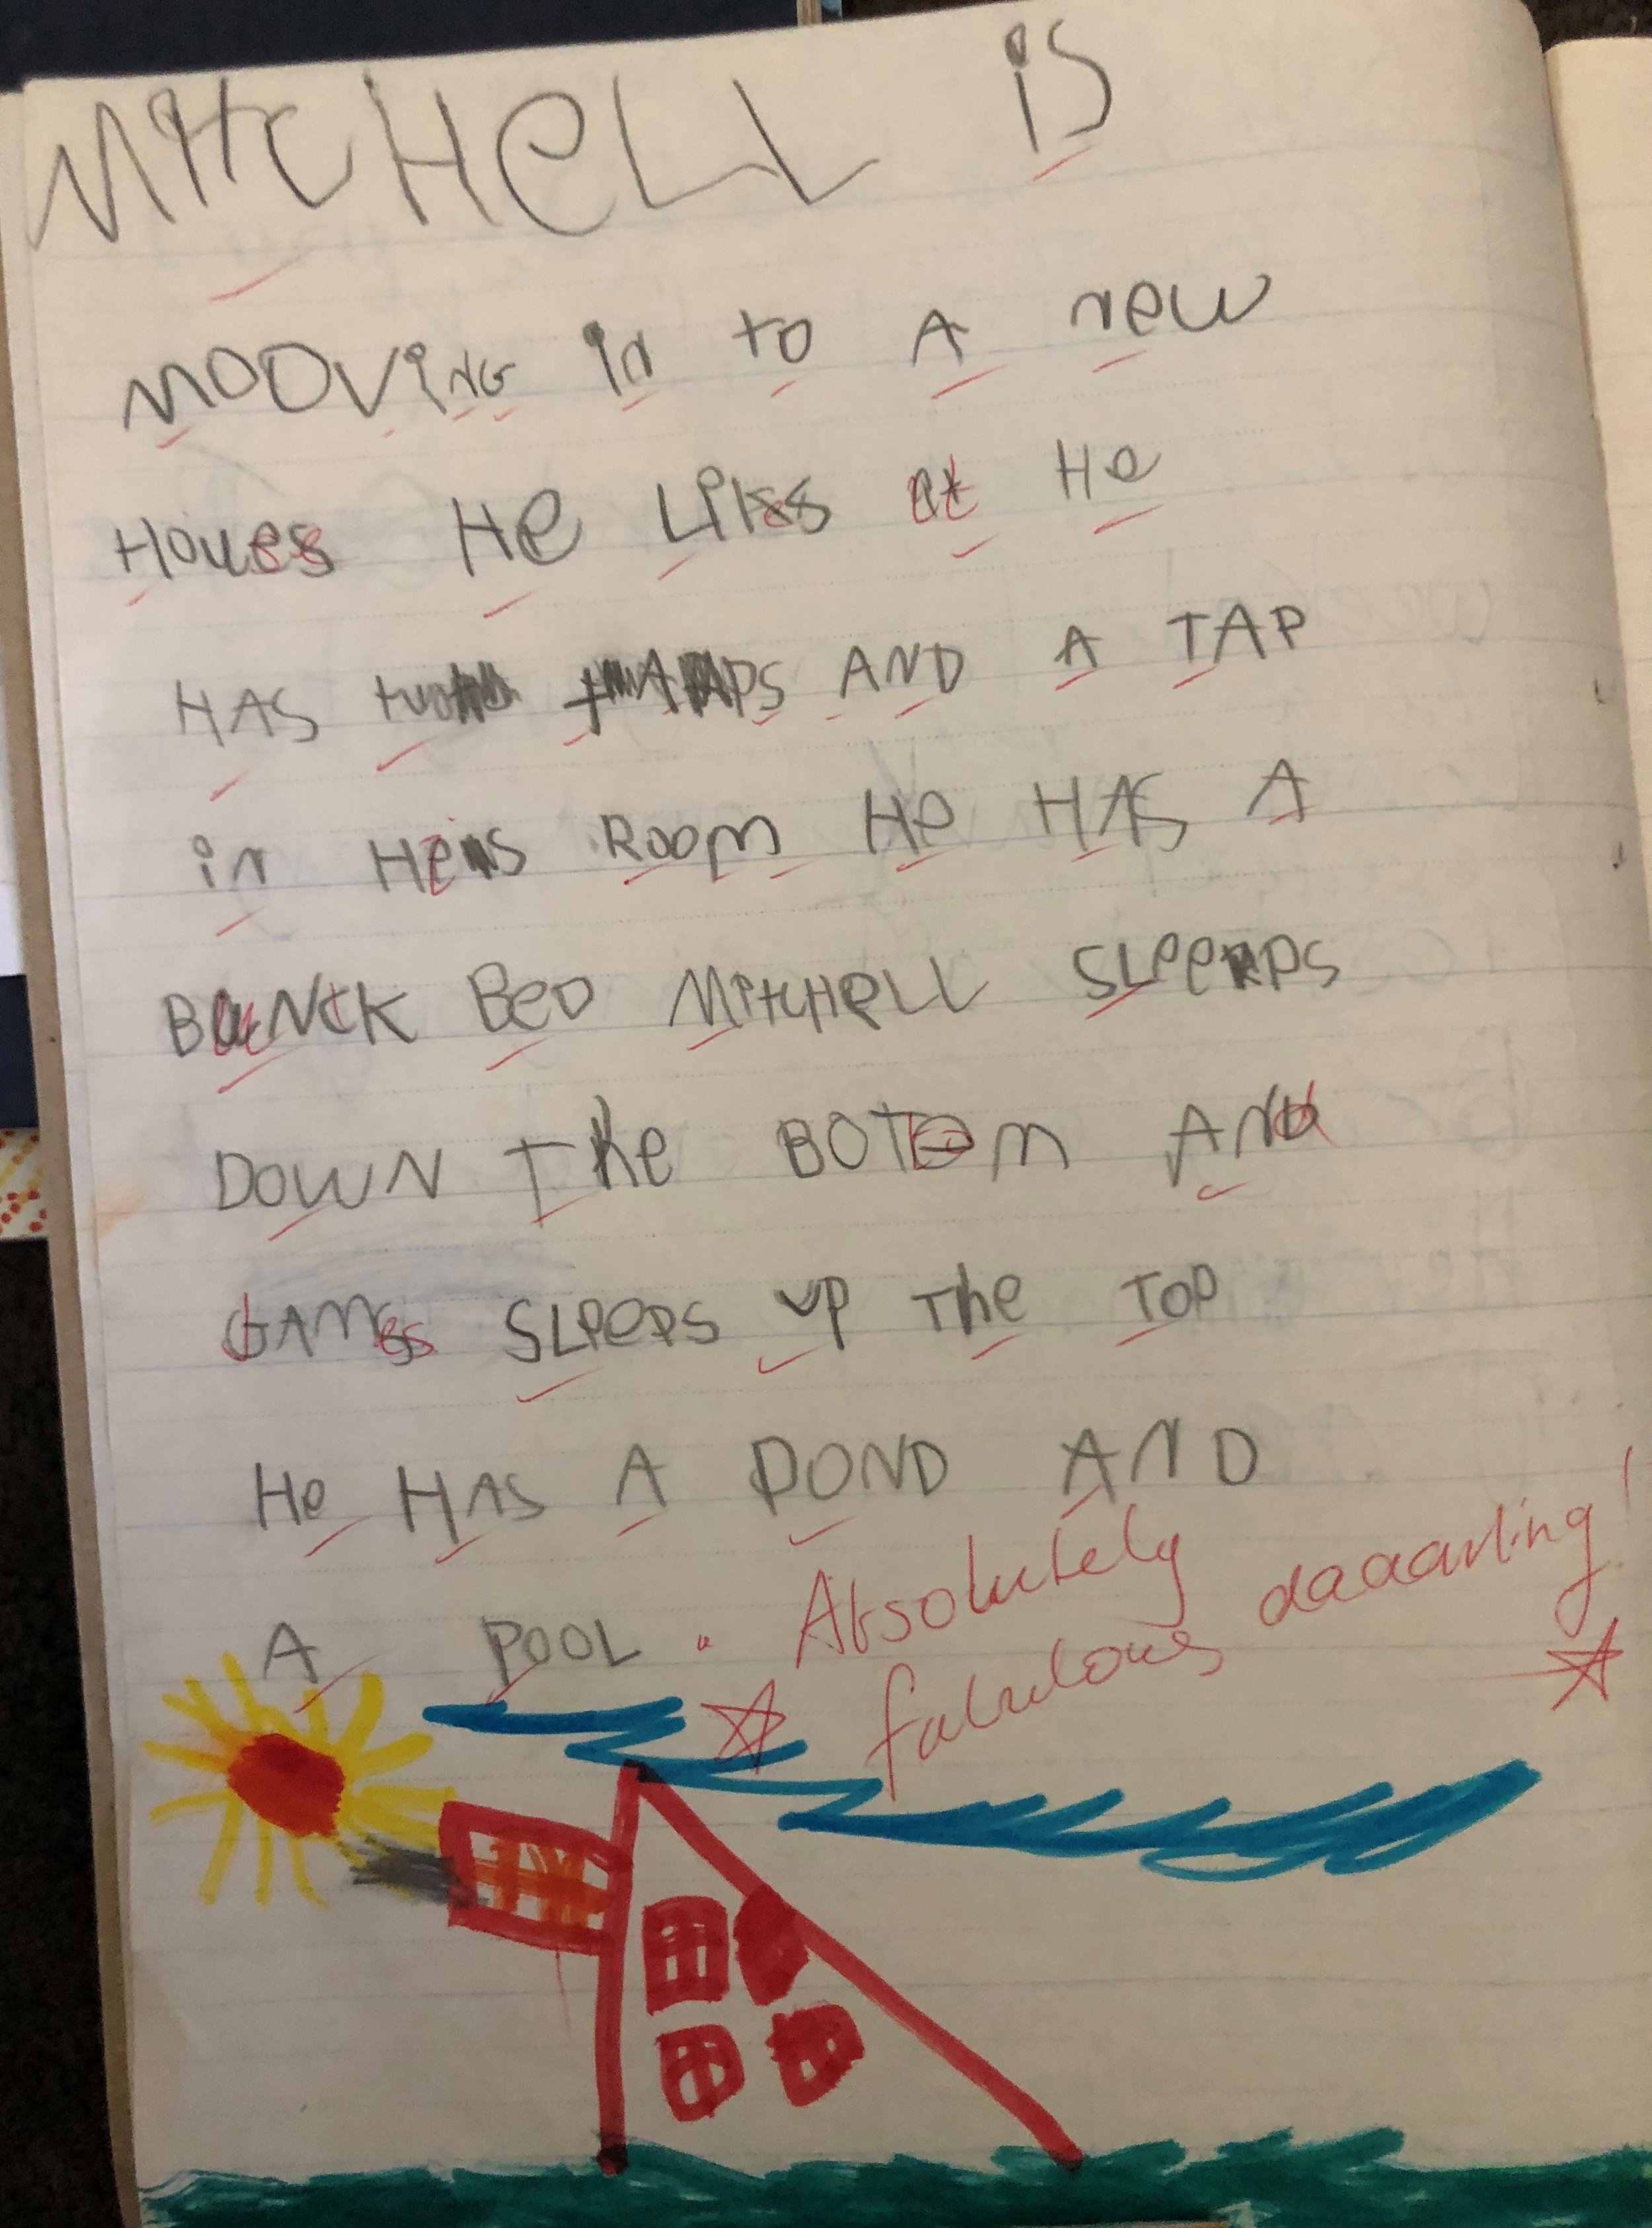 MITCHELL is
MOOViNG in to A new
HOUES He Likes it He
HAS AND A TAP
in HiS ROOM He HAS A
BUNCK BeD MiTCHELL SLeePS
DOWN The BOTOM AND
SLeePS UP The TOP
He HAS A POND AND
A POOL . Absolutely
fabulous daaarling!